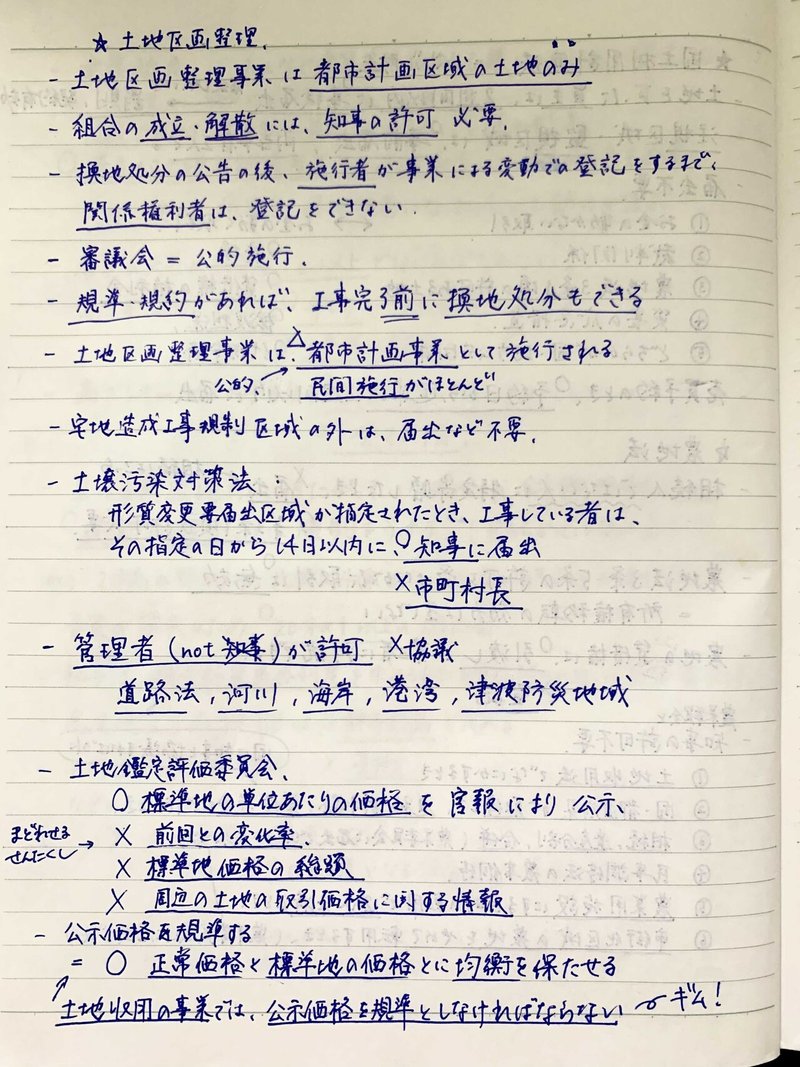 ☆ 土地区画整理.
- 土地区画整理事業は都市計画区域の土地のみ
- 組合の成立・解散には、知事の許可 必要.
- 換地処分の公告の後、施行者が事業による変動での登記をするまで、
関係権利者は、登記をできない.
- 審議会 = 公的施行.
- 規準・規約があれば、工事完了前に換地処分もできる
- 土地区画整理事業は、△都市計画事業として施行される
公的. ↗ 民間施行がほとんど
- 宅地造成工事規制区域の外は、届出など不要.
- 土壌汚染対策法 :
形質変更要届出区域が指定されたとき、工事している者は、
その指定の日から14日以内に、○知事に届出
×市町村長
- 管理者 (not 知事) が許可 ×協議
道路法, 河川, 海岸, 港湾, 津波防災地域
- 土地鑑定評価委員会.
○ 標準地の単位あたりの価格を官報により公示、
まどわせるせんたくし → × 前回との変化率.
× 標準地価格の総額
× 周辺の土地の取引価格に関する情報
- 公示価格を規準する
= ○ 正常価格と標準地の価格とに均衡を保たせる
↗ 土地収用の事業では、公示価格を規準としなければならない 〜ギム!